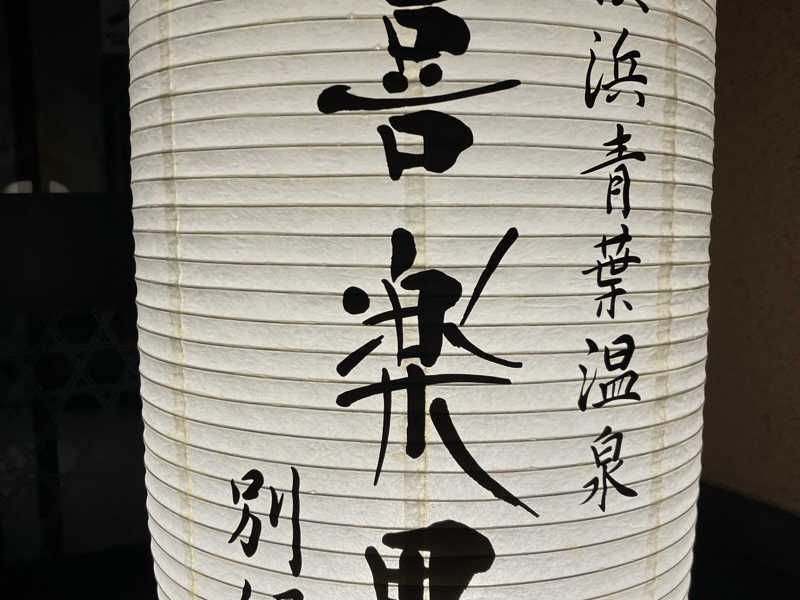 浜青葉温泉
喜楽
別